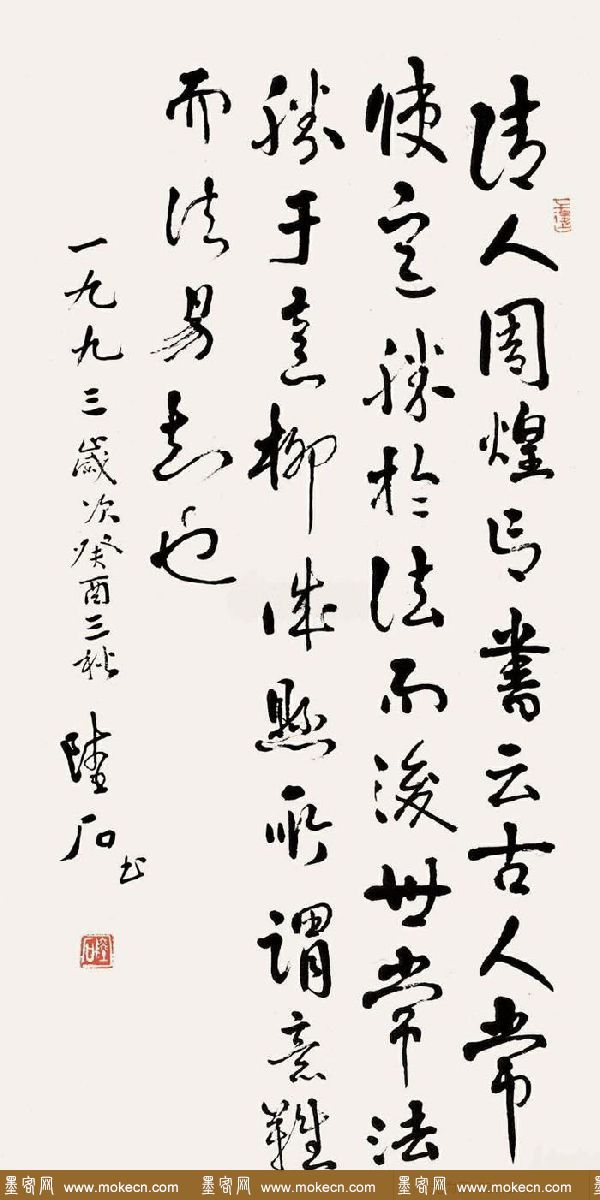 清人周煌書云古人常
使意勝於法而後世常法
勝于意柳誠懸所謂意難
而法易知也
一九九三歲次癸酉三秋
陸石书
陸石
墨客网 www.mokecn.com 墨客网 www.mokecn.com 墨客网 www.mokecn.com